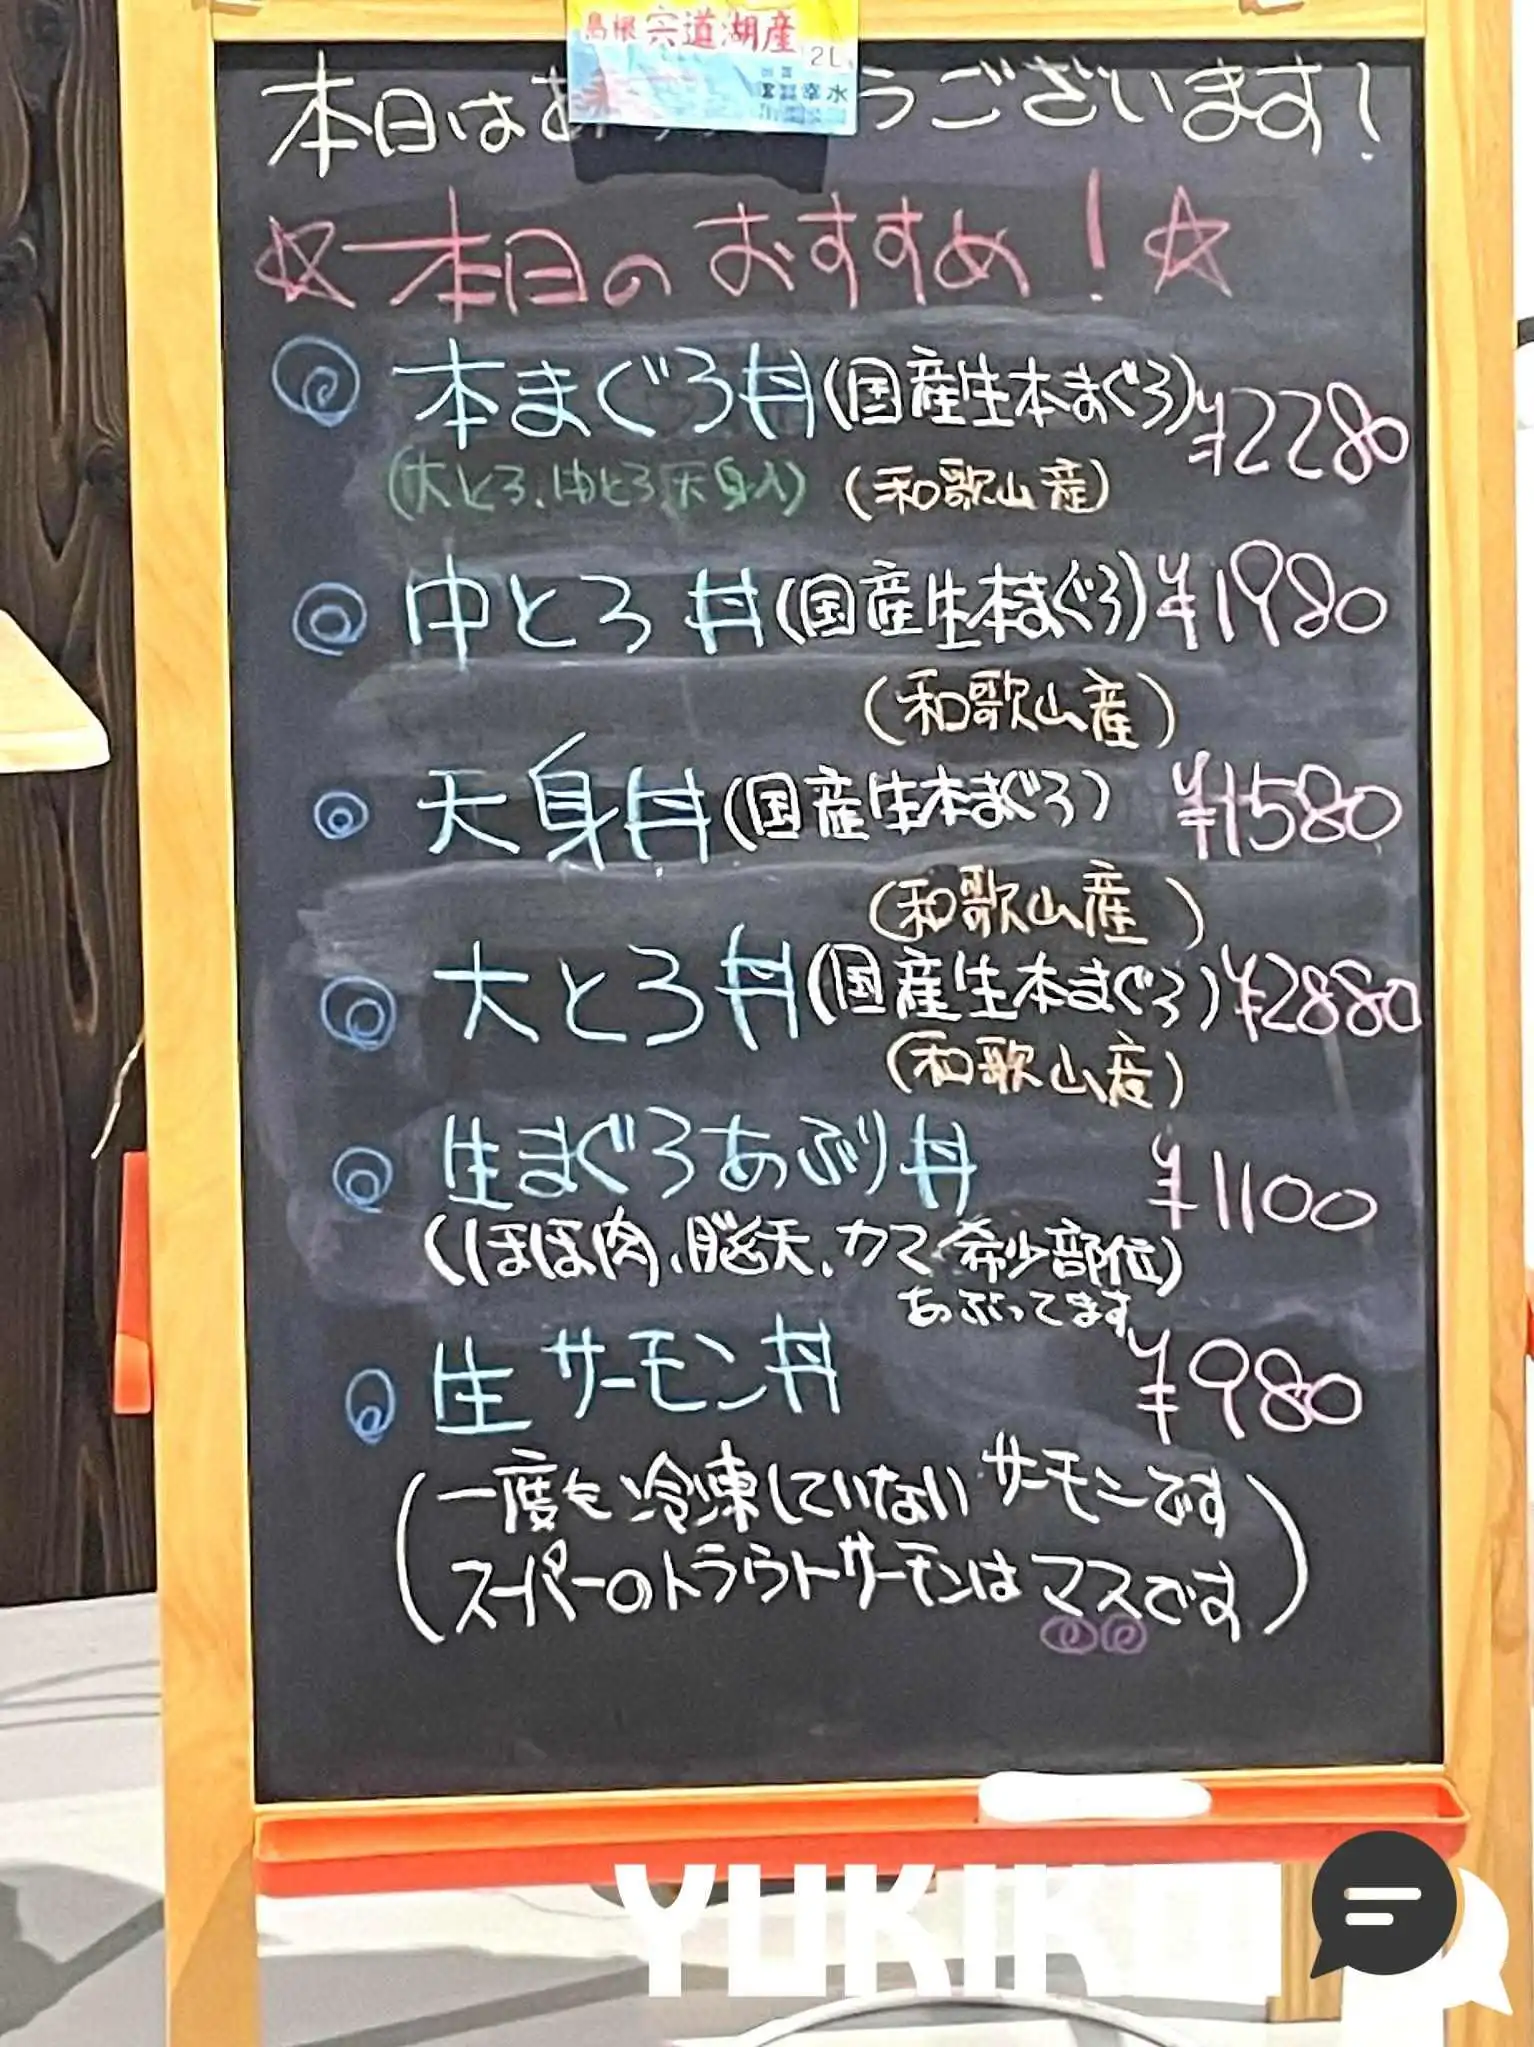 島根 宍道湖産
2L
本日はあ うございます!
☆本日のおすすめ!☆
本まぐろ丼(国産生本まぐろ)¥2280
(大とろ、中とろ、天身入) (和歌山産)
中とろ丼(国産生本まぐろ)¥1980
(和歌山産)
天身丼(国産生本まぐろ) ¥1580
(和歌山産)
大とろ丼(国産生本まぐろ)¥2880
(和歌山産)
生まぐろあぶり丼 ¥1100
(ほほ肉、脳天、カマ 希少部位)
あぶってます
生サーモン丼 ¥980
(一度も冷凍していないサーモンです
スーパーのトラウトサーモンはマスです)